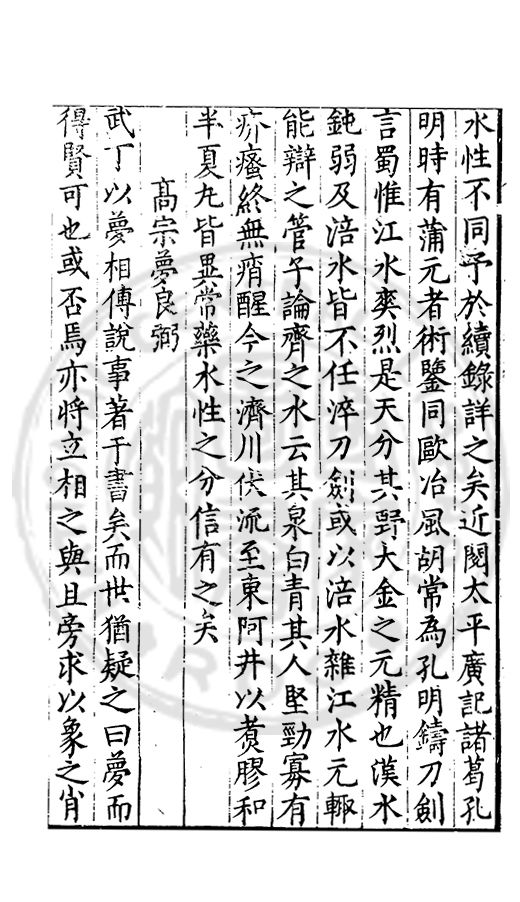 水性不同予於續錄詳之矣近閱太平廣記諸葛孔
明時有蒲元者術鑒同歐冶風胡常為孔明鑄刀劍
言蜀惟江水爽烈是天分其野大金之元精也漢水
鈍弱及涪水皆不任淬刀劍或以涪水雜江水元輙
能辯之管子論齊之水云其泉白青其人堅勁寡有
疥瘙終無痟醒今之濟川伏流至東阿井以煑膠和
半夏丸皆異常藥水性之分信有之矣
高宗夢良弼
武丁以夢相傅說事著于書矣而世猶疑之曰夢而
得賢可也或否焉亦將立相之與且旁求以象之肖